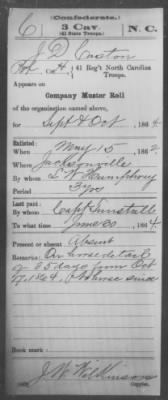 (Confederate.)
6 3 Cav. N. C.
(41 State Troops.)
J D Easton
41 Reg't North Carolina
Troops.
Appears on
Company Muster Roll
of the organization named above,
for Sept & Oct, 1864.
Enlisted:
When May 15, 1862
Where Jacksonville
By whom L. W. Humphrey
Period 3 yrs
Last paid:
By whom Capt Tunstall
To what time June 30, 1864.
Present or absent Absent
Remarks: On horse detail
of 35 days from Oct
since
Book mark:
J. W. Wilkinson
Copyist.